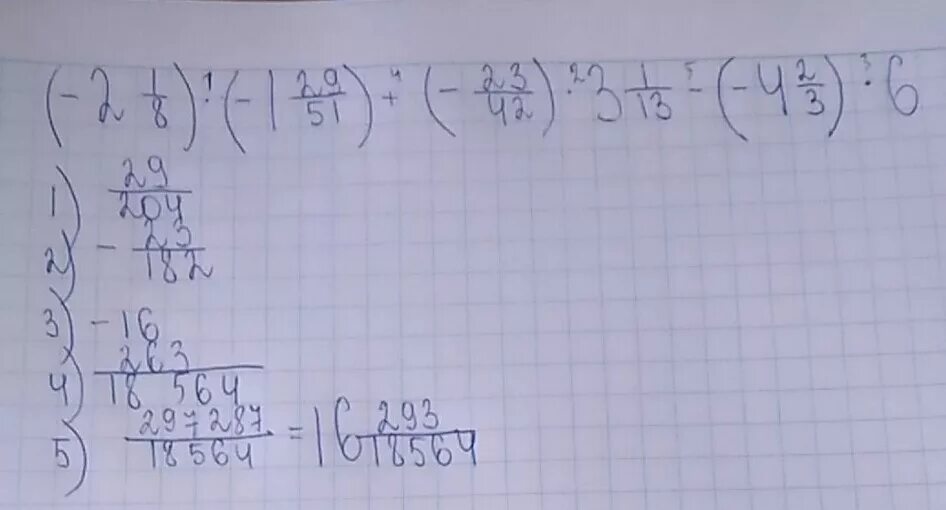 (-2 1/8) : (-1 29/51) + (-23/42) · 3 1/13 - (-4 2/3) : 6
1) 29/204
2) -23/182
3) -16
4) 263/18 564
5) 297 287/18564 = 16 293/18564